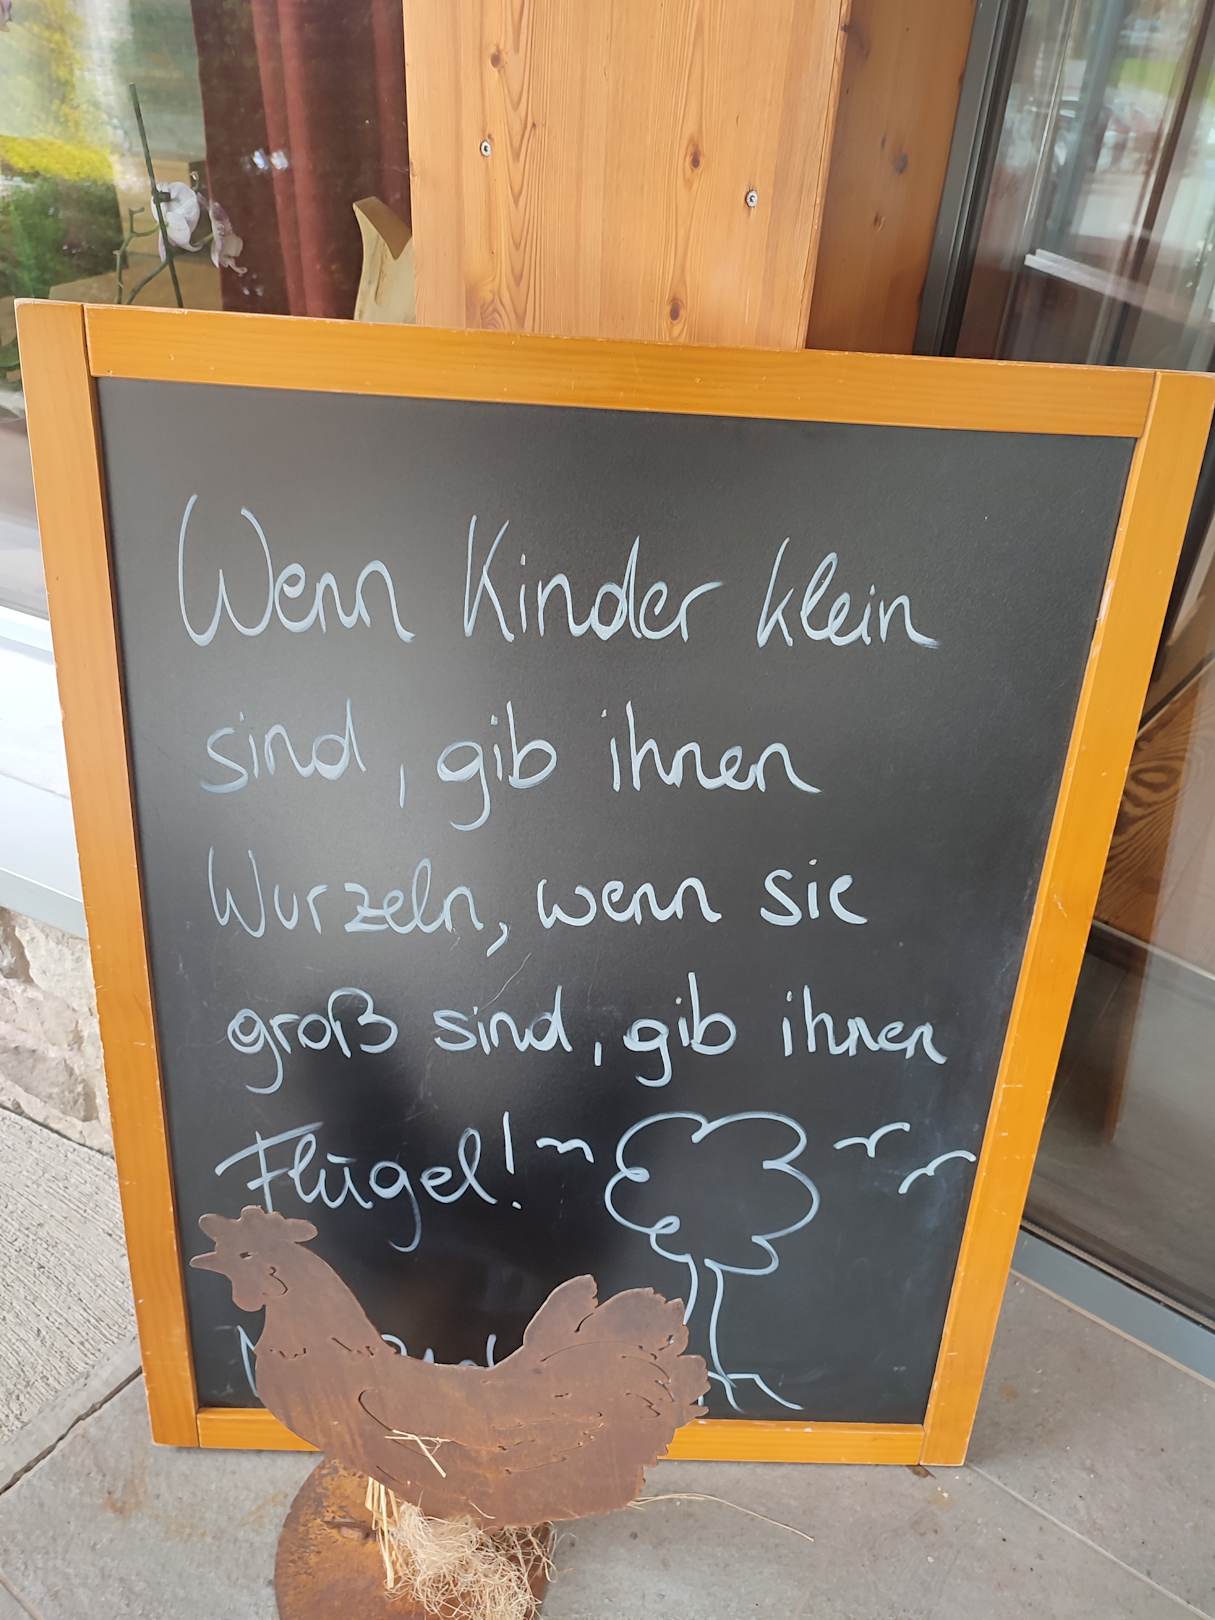 Wenn Kinder klein
sind, gib ihnen
Wurzeln, wenn sie
groß sind, gib ihnen
Flügel!